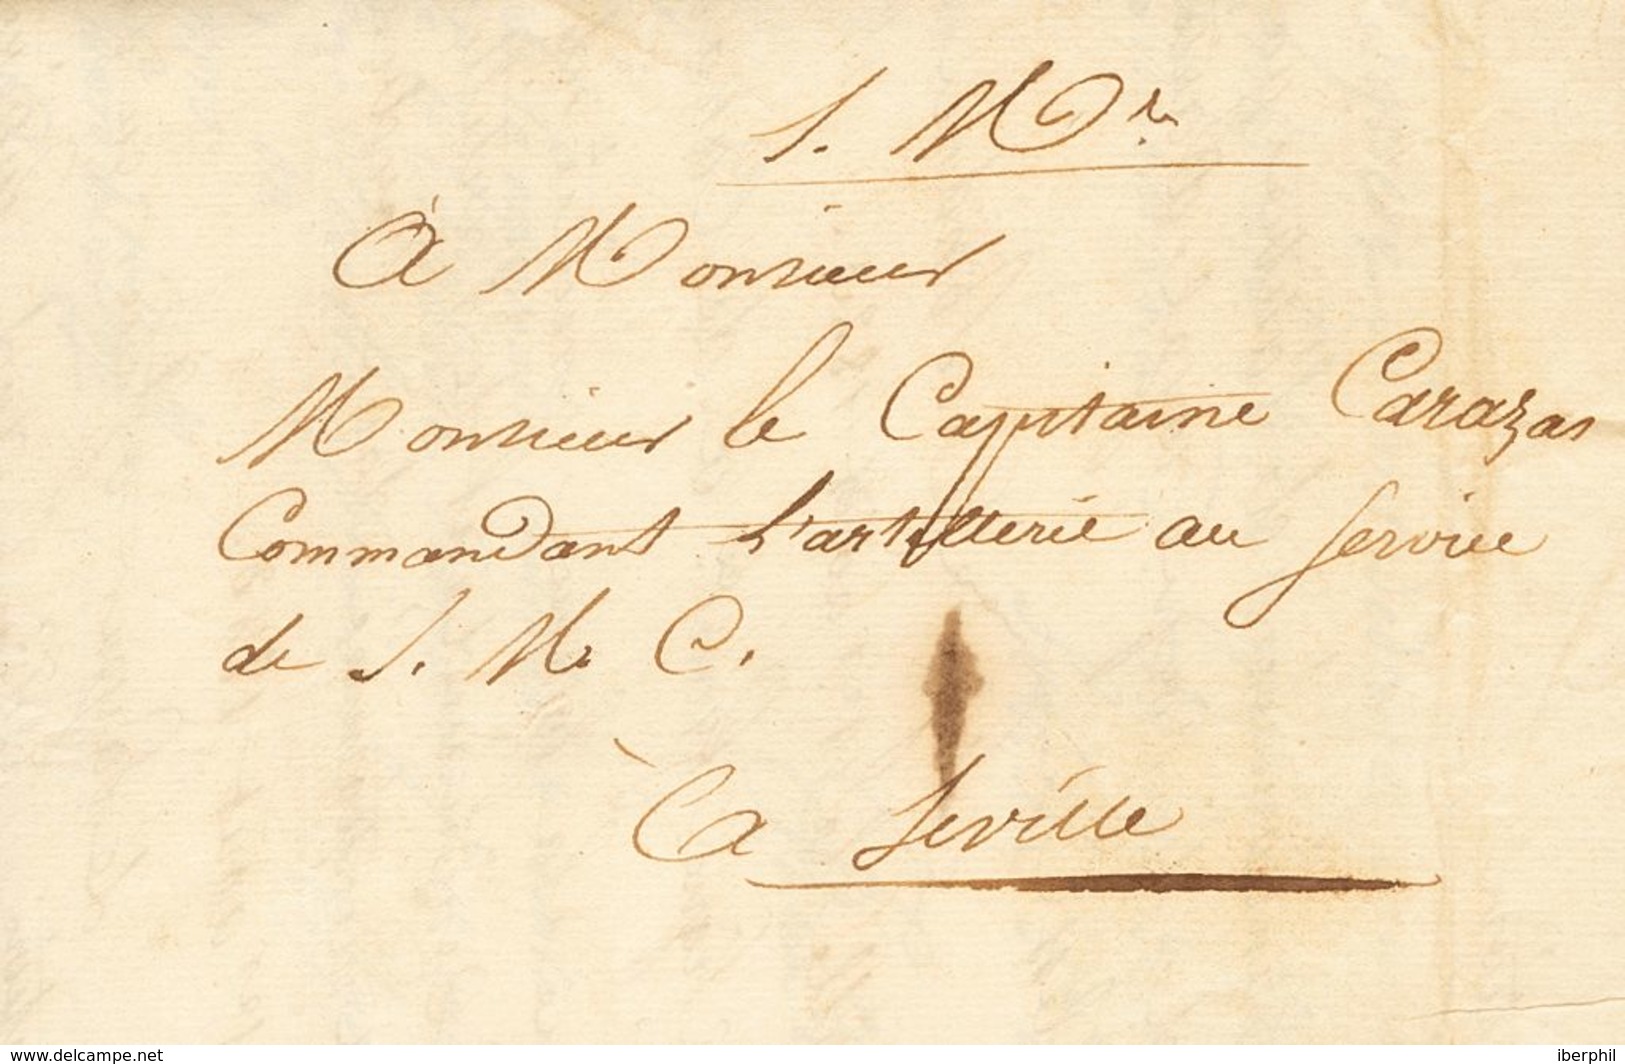 S. M.re
À Monsieur
Monsieur le Capitaine Carazas
Commandant l'artillerie au Service
de S. M. C.
à Seville
www.delcampe.net
iberphil